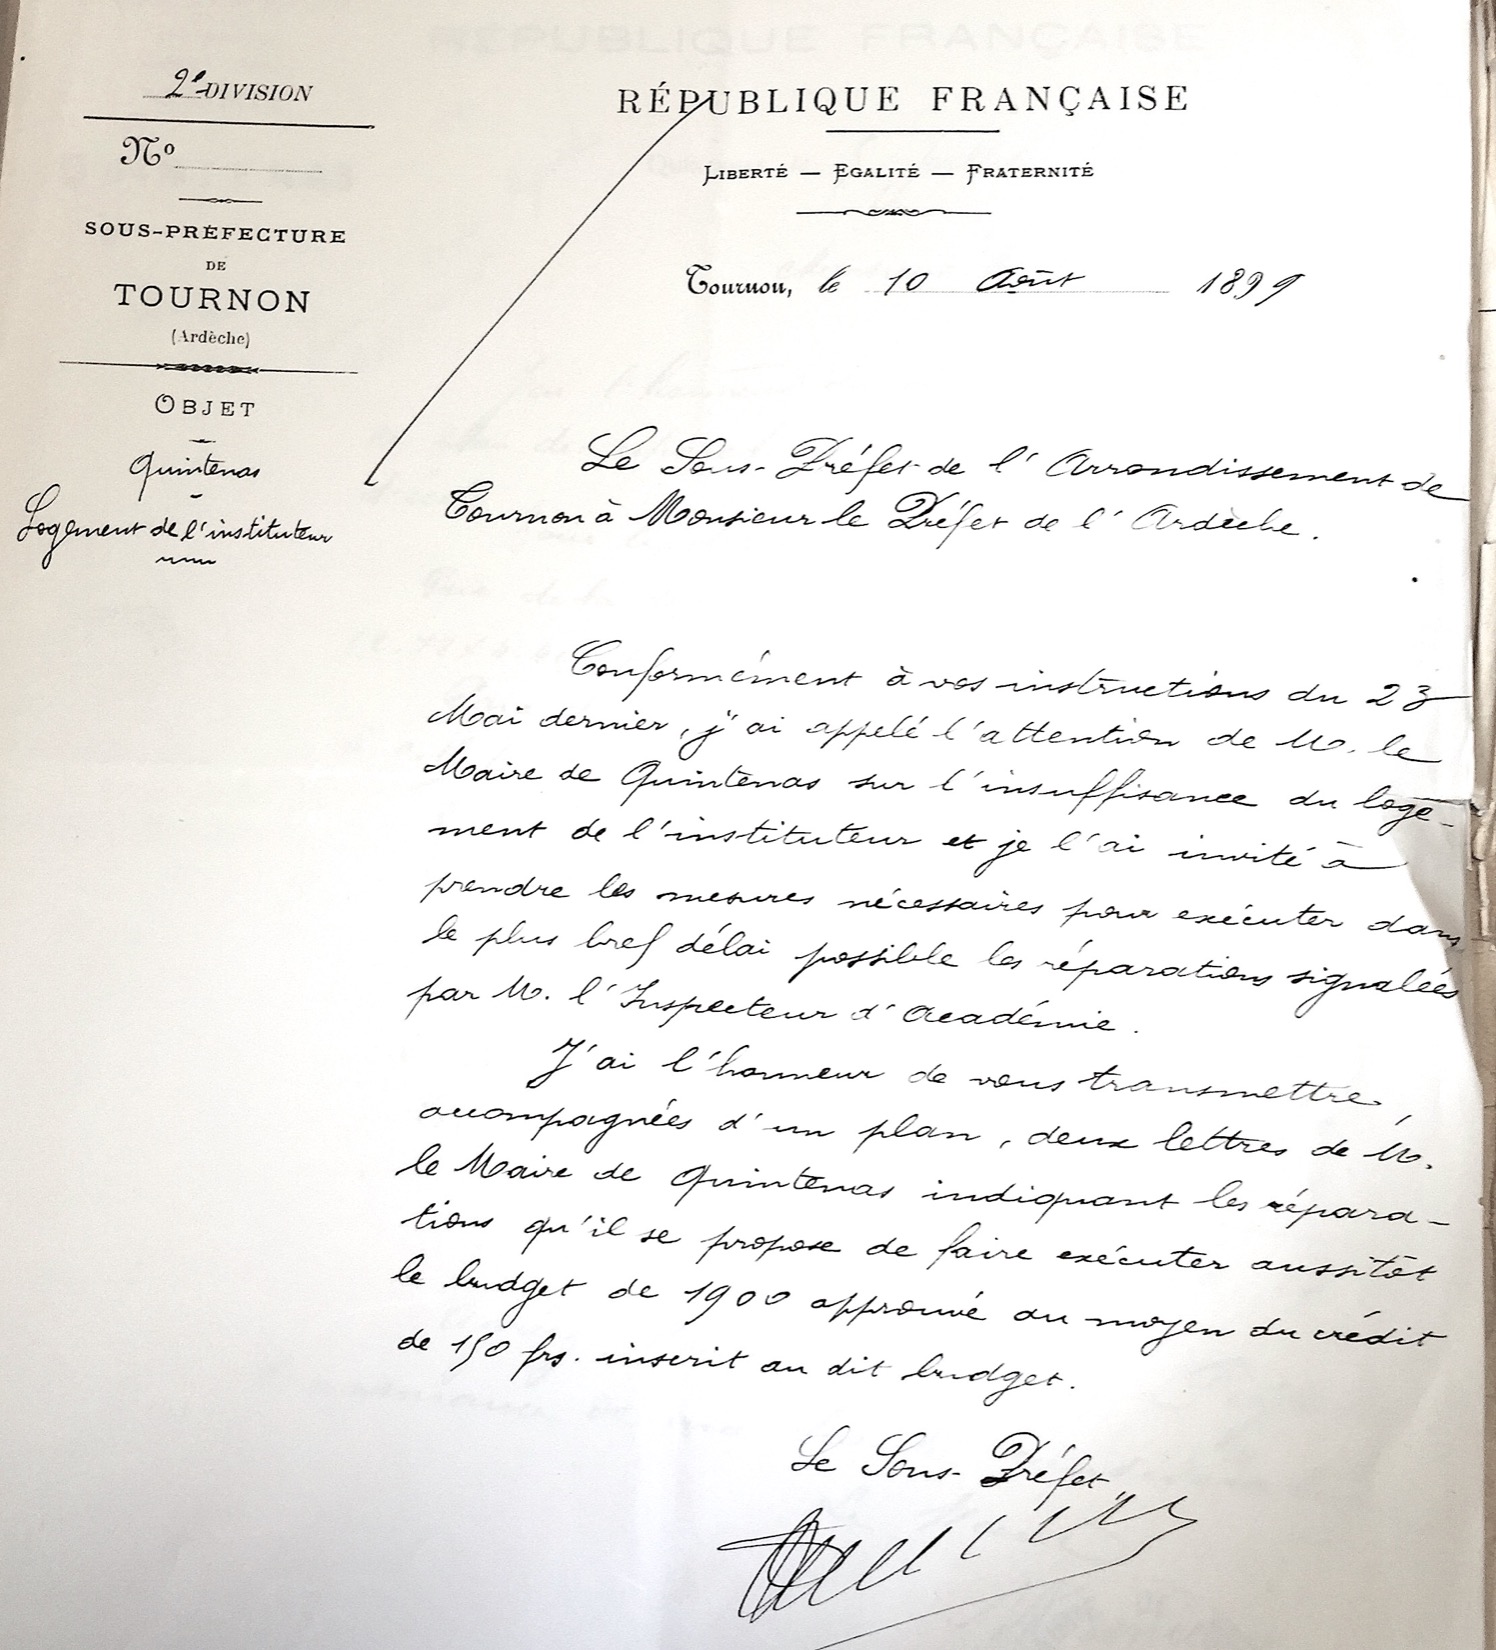 2e DIVISION
No
SOUS-PRÉFECTURE
DE
TOURNON
(Ardèche)
OBJET
Quintenas
Logement de l'instituteur
RÉPUBLIQUE FRANÇAISE
LIBERTÉ — EGALITÉ — FRATERNITÉ
Tournon, le 10 Août 1899
Le Sous-Préfet de l'Arrondissement de
Tournon à Monsieur le Préfet de l'Ardèche.
Conformément à vos instructions du 23
Mai dernier, j'ai appelé l'attention de M. le
Maire de Quintenas sur l'insuffisance du loge-
ment de l'instituteur et je l'ai invité à
prendre les mesures nécessaires pour exécuter dans
le plus bref délai possible les réparations signalées
par M. l'Inspecteur d'Académie.
J'ai l'honneur de vous transmettre,
accompagnées d'un plan, deux lettres de M.
le Maire de Quintenas indiquant les répara-
tions qu'il se propose de faire exécuter aussitôt
le budget de 1900 approuvé au moyen du crédit
de 150 frs. inscrit au dit budget.
Le Sous-Préfet,